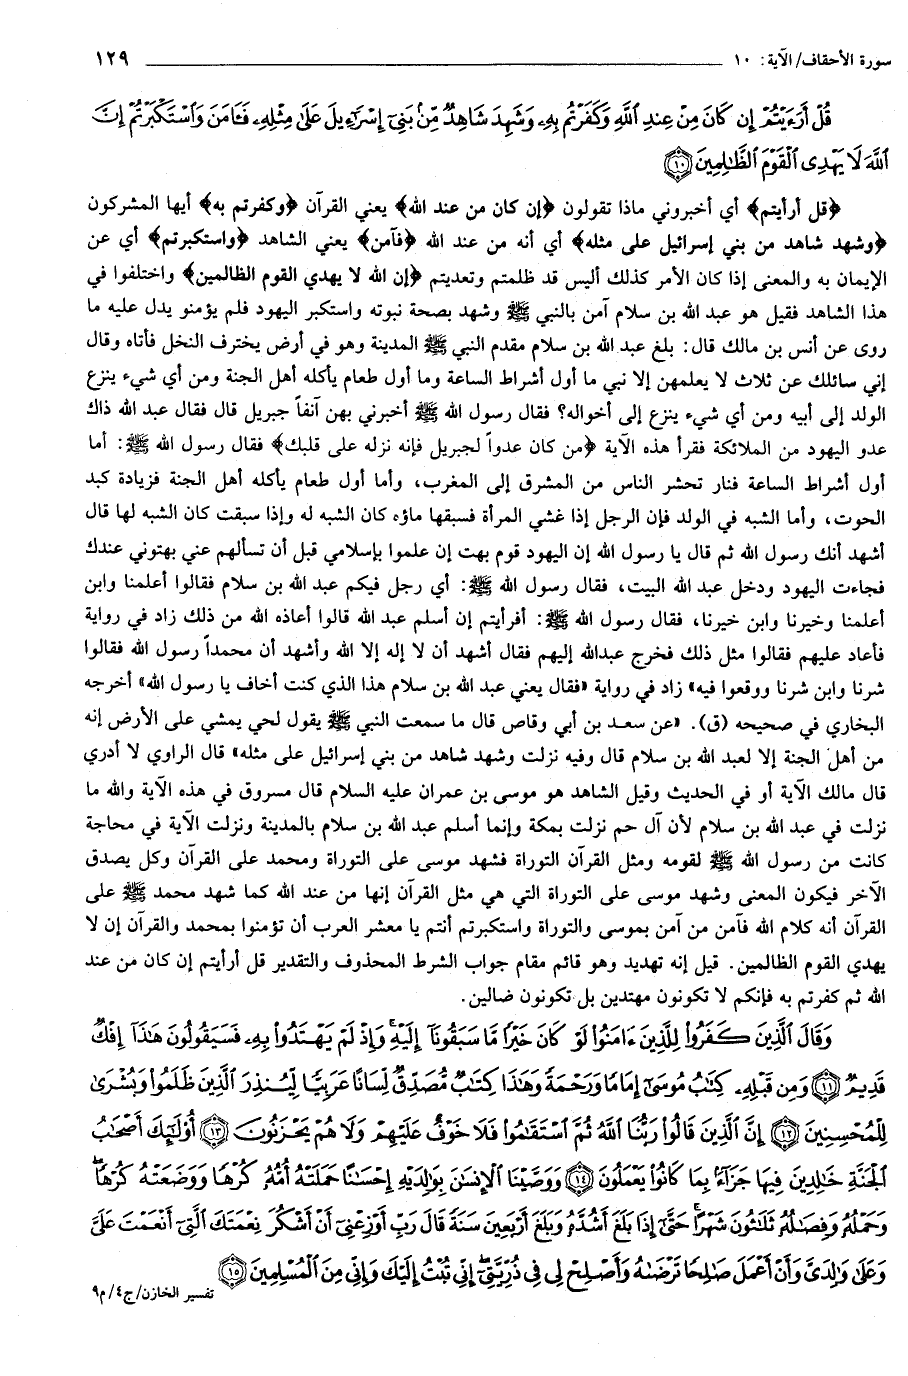 سورة الأحقاف/ الآية: ١٠ ١٢٩
قُلْ أَرَءَيْتُمْ إِن كَانَ مِنْ عِندِ ٱللَّهِ وَكَفَرْتُم بِهِۦ وَشَهِدَ شَاهِدٌ مِّنۢ بَنِىٓ إِسْرَٰٓءِيلَ عَلَىٰ مِثْلِهِۦ فَـَٔامَنَ وَٱسْتَكْبَرْتُمْ إِنَّ
ٱللَّهَ لَا يَهْدِى ٱلْقَوْمَ ٱلظَّٰلِمِينَ ١٠
﴿قل أرأيتم﴾ أي أخبروني ماذا تقولون ﴿إن كان من عند الله﴾ يعني القرآن ﴿وكفرتم به﴾ أيها المشركون
﴿وشهد شاهد من بني إسرائيل على مثله﴾ أي أنه من عند الله ﴿فآمن﴾ يعني الشاهد ﴿واستكبرتم﴾ أي عن
الإيمان به والمعنى إذا كان الأمر كذلك أليس قد ظلمتم وتعديتم ﴿إن الله لا يهدي القوم الظالمين﴾ واختلفوا في
هذا الشاهد فقيل هو عبد الله بن سلام آمن بالنبي ﷺ وشهد بصحة نبوته واستكبر اليهود فلم يؤمنو يدل عليه ما
روى عن أنس بن مالك قال: بلغ عبد الله بن سلام مقدم النبي ﷺ المدينة وهو في أرض يخترف النخل فأتاه وقال
إني سائلك عن ثلاث لا يعلمهن إلا نبي ما أول أشراط الساعة وما أول طعام يأكله أهل الجنة ومن أي شيء ينزع
الولد إلى أبيه ومن أي شيء ينزع إلى أخواله؟ فقال رسول الله ﷺ أخبرني بهن آنفاً جبريل قال فقال عبد الله ذاك
عدو اليهود من الملائكة فقرأ هذه الآية ﴿من كان عدواً لجبريل فإنه نزله على قلبك﴾ فقال رسول الله ﷺ: أما
أول أشراط الساعة فنار تحشر الناس من المشرق إلى المغرب، وأما أول طعام يأكله أهل الجنة فزيادة كبد
الحوت، وأما الشبه في الولد فإن الرجل إذا غشي المرأة فسبقها ماؤه كان الشبه له وإذا سبقت كان الشبه لها قال
أشهد أنك رسول الله ثم قال يا رسول الله إن اليهود قوم بهت إن علموا بإسلامي قبل أن تسألهم عني بهتوني عندك
فجاءت اليهود ودخل عبد الله البيت، فقال رسول الله ﷺ: أي رجل فيكم عبد الله بن سلام فقالوا أعلمنا وابن
أعلمنا وخيرنا وابن خيرنا، فقال رسول الله ﷺ: أفرأيتم إن أسلم عبد الله قالوا أعاذه الله من ذلك زاد في رواية
فأعاد عليهم فقالوا مثل ذلك فخرج عبدالله إليهم فقال أشهد أن لا إله إلا الله وأشهد أن محمداً رسول الله فقالوا
شرنا وابن شرنا ووقعوا فيه» زاد في رواية «فقال يعني عبد الله بن سلام هذا الذي كنت أخاف يا رسول الله» أخرجه
البخاري في صحيحه (ق). «عن سعد بن أبي وقاص قال ما سمعت النبي ﷺ يقول لحي يمشي على الأرض إنه
من أهل الجنة إلا لعبد الله بن سلام قال وفيه نزلت وشهد شاهد من بني إسرائيل على مثله» قال الراوي لا أدري
قال مالك الآية أو في الحديث وقيل الشاهد هو موسى بن عمران عليه السلام قال مسروق في هذه الآية والله ما
نزلت في عبد الله بن سلام لأن آل حم نزلت بمكة وإنما أسلم عبد الله بن سلام بالمدينة ونزلت الآية في محاجة
كانت من رسول الله ﷺ لقومه ومثل القرآن التوراة فشهد موسى على التوراة ومحمد على القرآن وكل يصدق
الآخر فيكون المعنى وشهد موسى على التوراة التي هي مثل القرآن إنها من عند الله كما شهد محمد ﷺ على
القرآن أنه كلام الله فآمن من آمن بموسى والتوراة واستكبرتم أنتم يا معشر العرب أن تؤمنوا بمحمد والقرآن إن لا
يهدي القوم الظالمين. قيل إنه تهديد وهو قائم مقام جواب الشرط المحذوف والتقدير قل أرأيتم إن كان من عند
الله ثم كفرتم به فإنكم لا تكونون مهتدين بل تكونون ضالين.
وَقَالَ ٱلَّذِينَ كَفَرُوا۟ لِلَّذِينَ ءَامَنُوا۟ لَوْ كَانَ خَيْرًا مَّا سَبَقُونَآ إِلَيْهِ ۚ وَإِذْ لَمْ يَهْتَدُوا۟ بِهِۦ فَسَيَقُولُونَ هَٰذَآ إِفْكٌ
قَدِيمٌ ١١ وَمِن قَبْلِهِۦ كِتَٰبُ مُوسَىٰٓ إِمَامًا وَرَحْمَةً وَهَٰذَا كِتَٰبٌ مُّصَدِّقٌ لِّسَانًا عَرَبِيًّا لِّيُنذِرَ ٱلَّذِينَ ظَلَمُوا۟ وَبُشْرَىٰ
لِلْمُحْسِنِينَ ١٢ إِنَّ ٱلَّذِينَ قَالُوا۟ رَبُّنَا ٱللَّهُ ثُمَّ ٱسْتَقَٰمُوا۟ فَلَا خَوْفٌ عَلَيْهِمْ وَلَا هُمْ يَحْزَنُونَ ١٣ أُو۟لَٰٓئِكَ أَصْحَٰبُ
ٱلْجَنَّةِ خَٰلِدِينَ فِيهَا جَزَآءًۢ بِمَا كَانُوا۟ يَعْمَلُونَ ١٤ وَوَصَّيْنَا ٱلْإِنسَٰنَ بِوَٰلِدَيْهِ إِحْسَٰنًا حَمَلَتْهُ أُمُّهُۥ كُرْهًا وَوَضَعَتْهُ كُرْهًا ۖ
وَحَمْلُهُۥ وَفِصَٰلُهُۥ ثَلَٰثُونَ شَهْرًا ۚ حَتَّىٰٓ إِذَا بَلَغَ أَشُدَّهُۥ وَبَلَغَ أَرْبَعِينَ سَنَةً قَالَ رَبِّ أَوْزِعْنِىٓ أَنْ أَشْكُرَ نِعْمَتَكَ ٱلَّتِىٓ أَنْعَمْتَ عَلَىَّ
وَعَلَىٰ وَٰلِدَىَّ وَأَنْ أَعْمَلَ صَٰلِحًا تَرْضَىٰهُ وَأَصْلِحْ لِى فِى ذُرِّيَّتِىٓ ۖ إِنِّى تُبْتُ إِلَيْكَ وَإِنِّى مِنَ ٱلْمُسْلِمِينَ ١٥
تفسير الخازن/ ج٤/ م٩